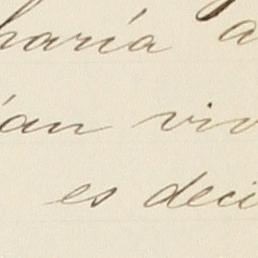 haría a
ían viv
es deci